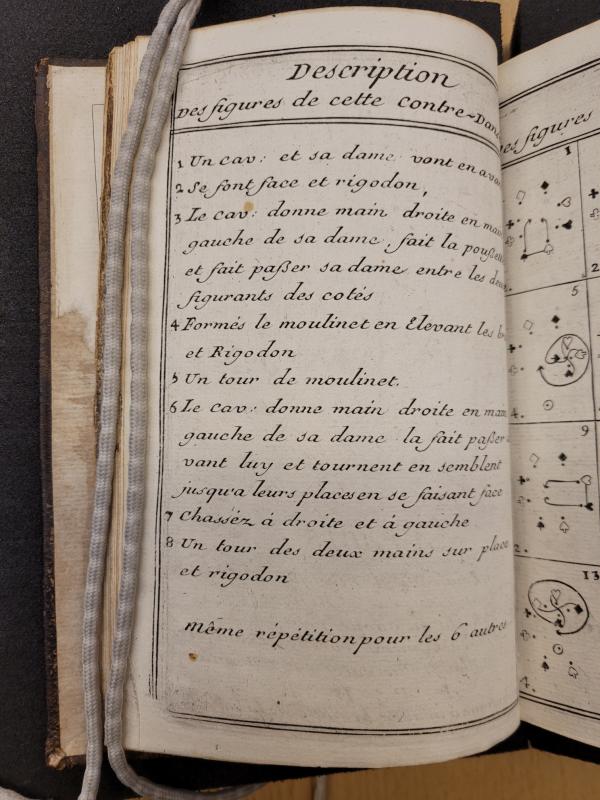 Description
Des figures de cette Contre-Dan
1 Un cav: et sa dame vont en ava
2 Se font face et rigodon,
3 Le cav: donne main droite en main
gauche de sa dame, fait la poußette
et fait paßer sa dame entre les deux
figurants des cotés
4 Formés le moulinet en Elevant les b
et Rigodon
5 Un tour de moulinet.
6 Le cav: donne main droite en main
gauche de sa dame la fait paßer
vant luy et tournent en semblent
jusqu'a leurs places en se faisant face
7 Chassèz á droite et á gauche
8 Un tour des deux mains sur place
et rigodon
Même répétition pour les 6 autres
es figures
1
2
5
4.
9
2.
13
4.